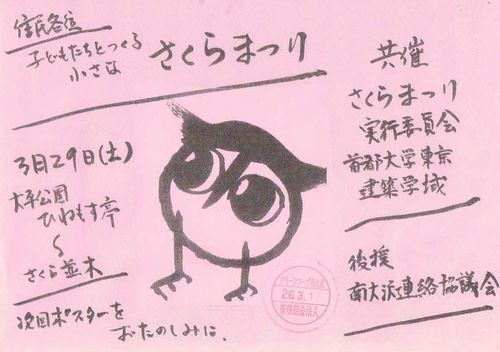 住民各位
子どもたちとつくる
小さな
さくらまつり
3月29日(土)
大平公園
ひねもす亭
〜
さくら並木
次回ポスターを
おたのしみに.
共催
さくらまつり
実行委員会
首都大学東京
建築学域
後援
南大沢連絡協議会
26.3.1
管理組合法人